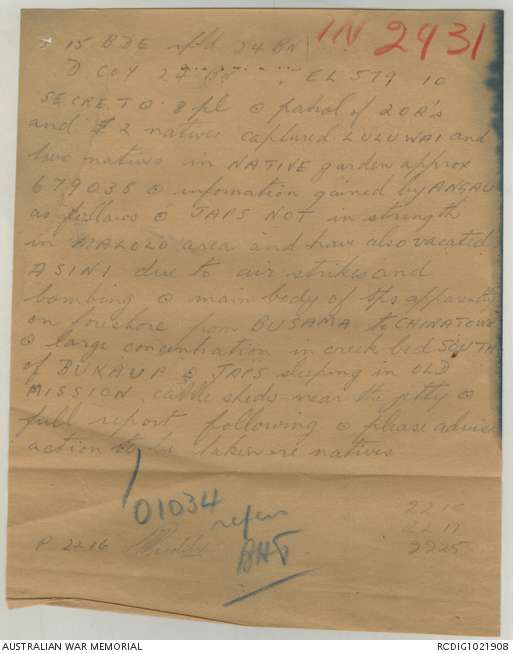 IN 2931
15 BDE rptd 24 BN
D COY 24 BN EL 579 10
SECRET ⊙ 8 pl ⊙ patrol of 2 OR's
and 2 natives captured LULUWAI and
two natives in NATIVE garden approx
679038 ⊙ information gained by ANGAU
as follows ⊙ JAPS NOT in strength
in MALOLO area and have also vacated
ASINI due to air strikes and
bombing ⊙ main body of tps apparently
on foreshore from BUSAMA to CHINATOWN
⊙ large concentration in creek bed SOUTH
of BUKAUP & JAPS sleeping in OLD
MISSION cattle sheds near the jetty ⊙
full report following ⊙ please advise
action to be taken re natives
01034
refers
2210
2217
P 2216
2225
AUSTRALIAN WAR MEMORIAL
RCDIG1021908